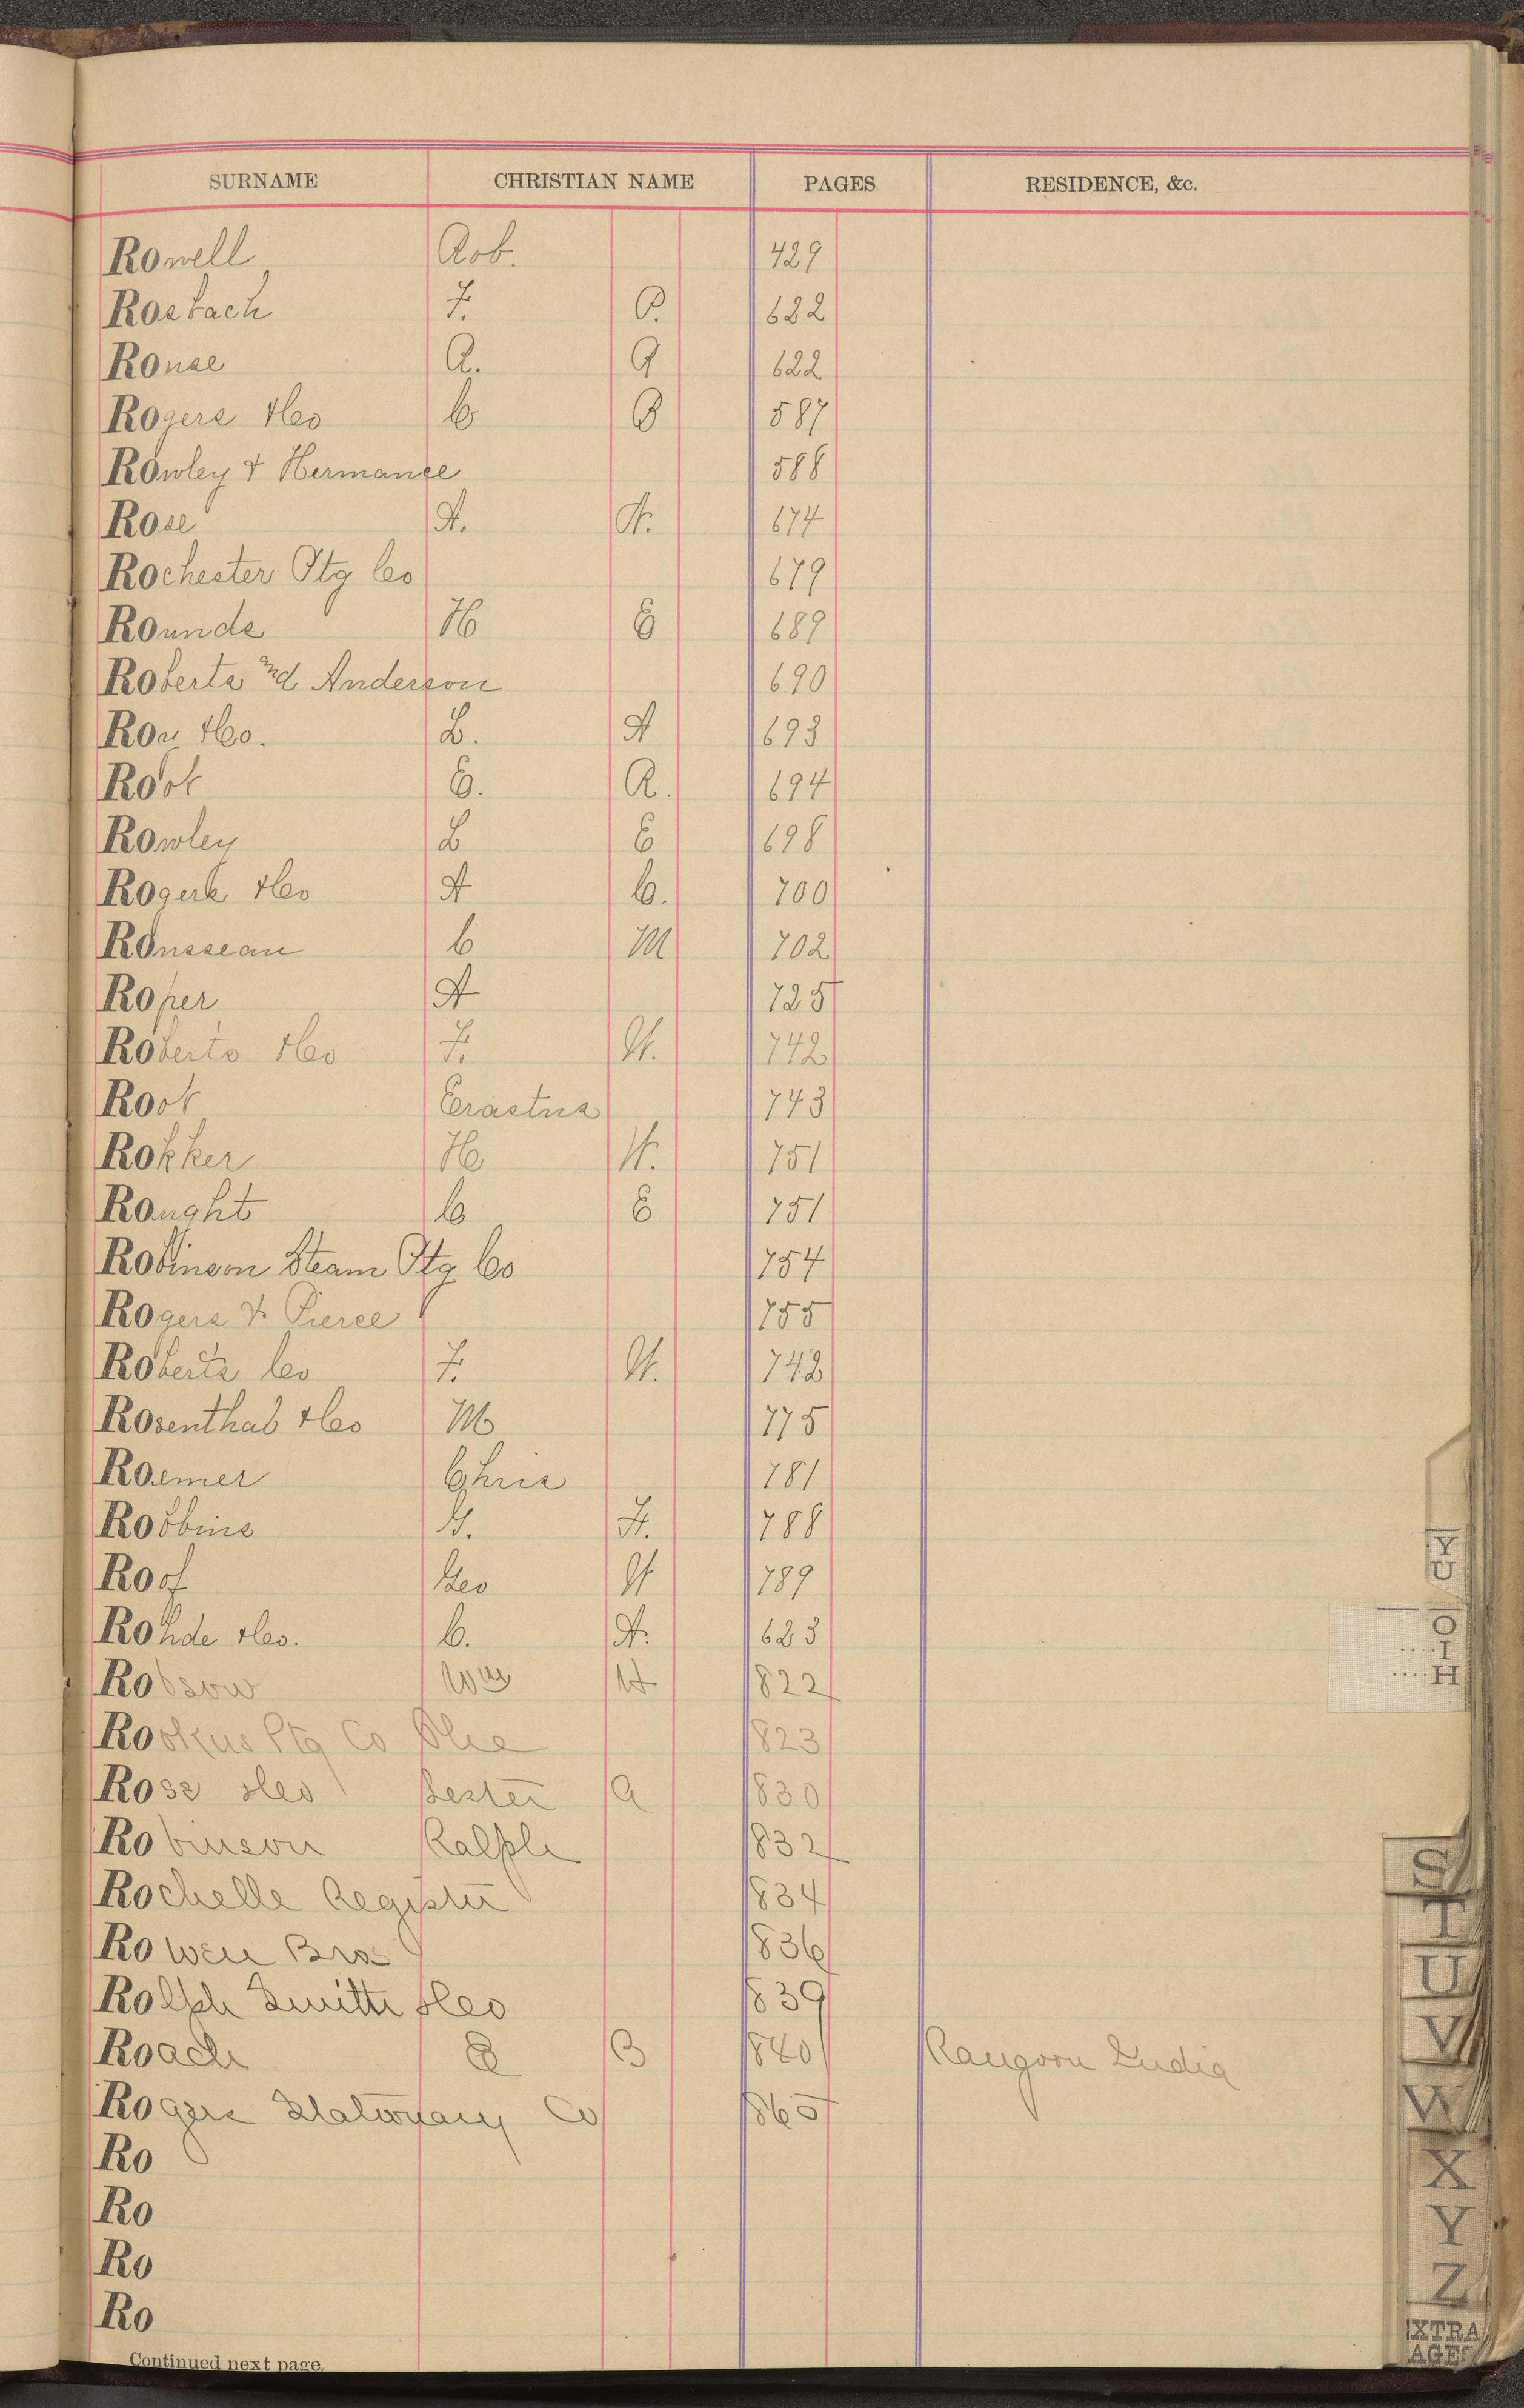 SURNAME CHRISTIAN NAME PAGES RESIDENCE, &c.
Rowell Rob. 429
Rosbach F. P. 622
Rouse A. A 622
Rogers & Co C B 587
Rowley & Hermance 588
Rose A. A. 674
Rochester Ptg Co 679
Rounds H E 689
Roberts and Anderson 690
Rou & Co. L. A 693
Root E. R. 694
Rowley L E 698
Rogers & Co A C. 700
Rousseau C M 702
Roper A 725
Roberts & Co F. H. 742
Root Erastus 743
Rokker H W. 751
Rought C E 751
Robinson Steam Ptg Co 754
Rogers & Pierce 755
Roberts Co F. H. 742
Rosenthal & Co M 775
Roemer Chris 781
Robbins G. F. 788
Roof Geo W 789
Rohde & Co. C. A. 623
Robson Wm H 822
Ptg Co 823
Rose & Co Lester A 830
Robinson Ralph 832
Rochelle Register 834
Rowen Bros 836
Rolph Smith & Co 839
Roach E B 840 Rangoon India
Rogers Stationary Co 865
Ro
Ro
Ro
Ro
Continued next page.
Y
U
O
I
H
S
T
U
V
W
X
Y
Z
EXTRA
AGES